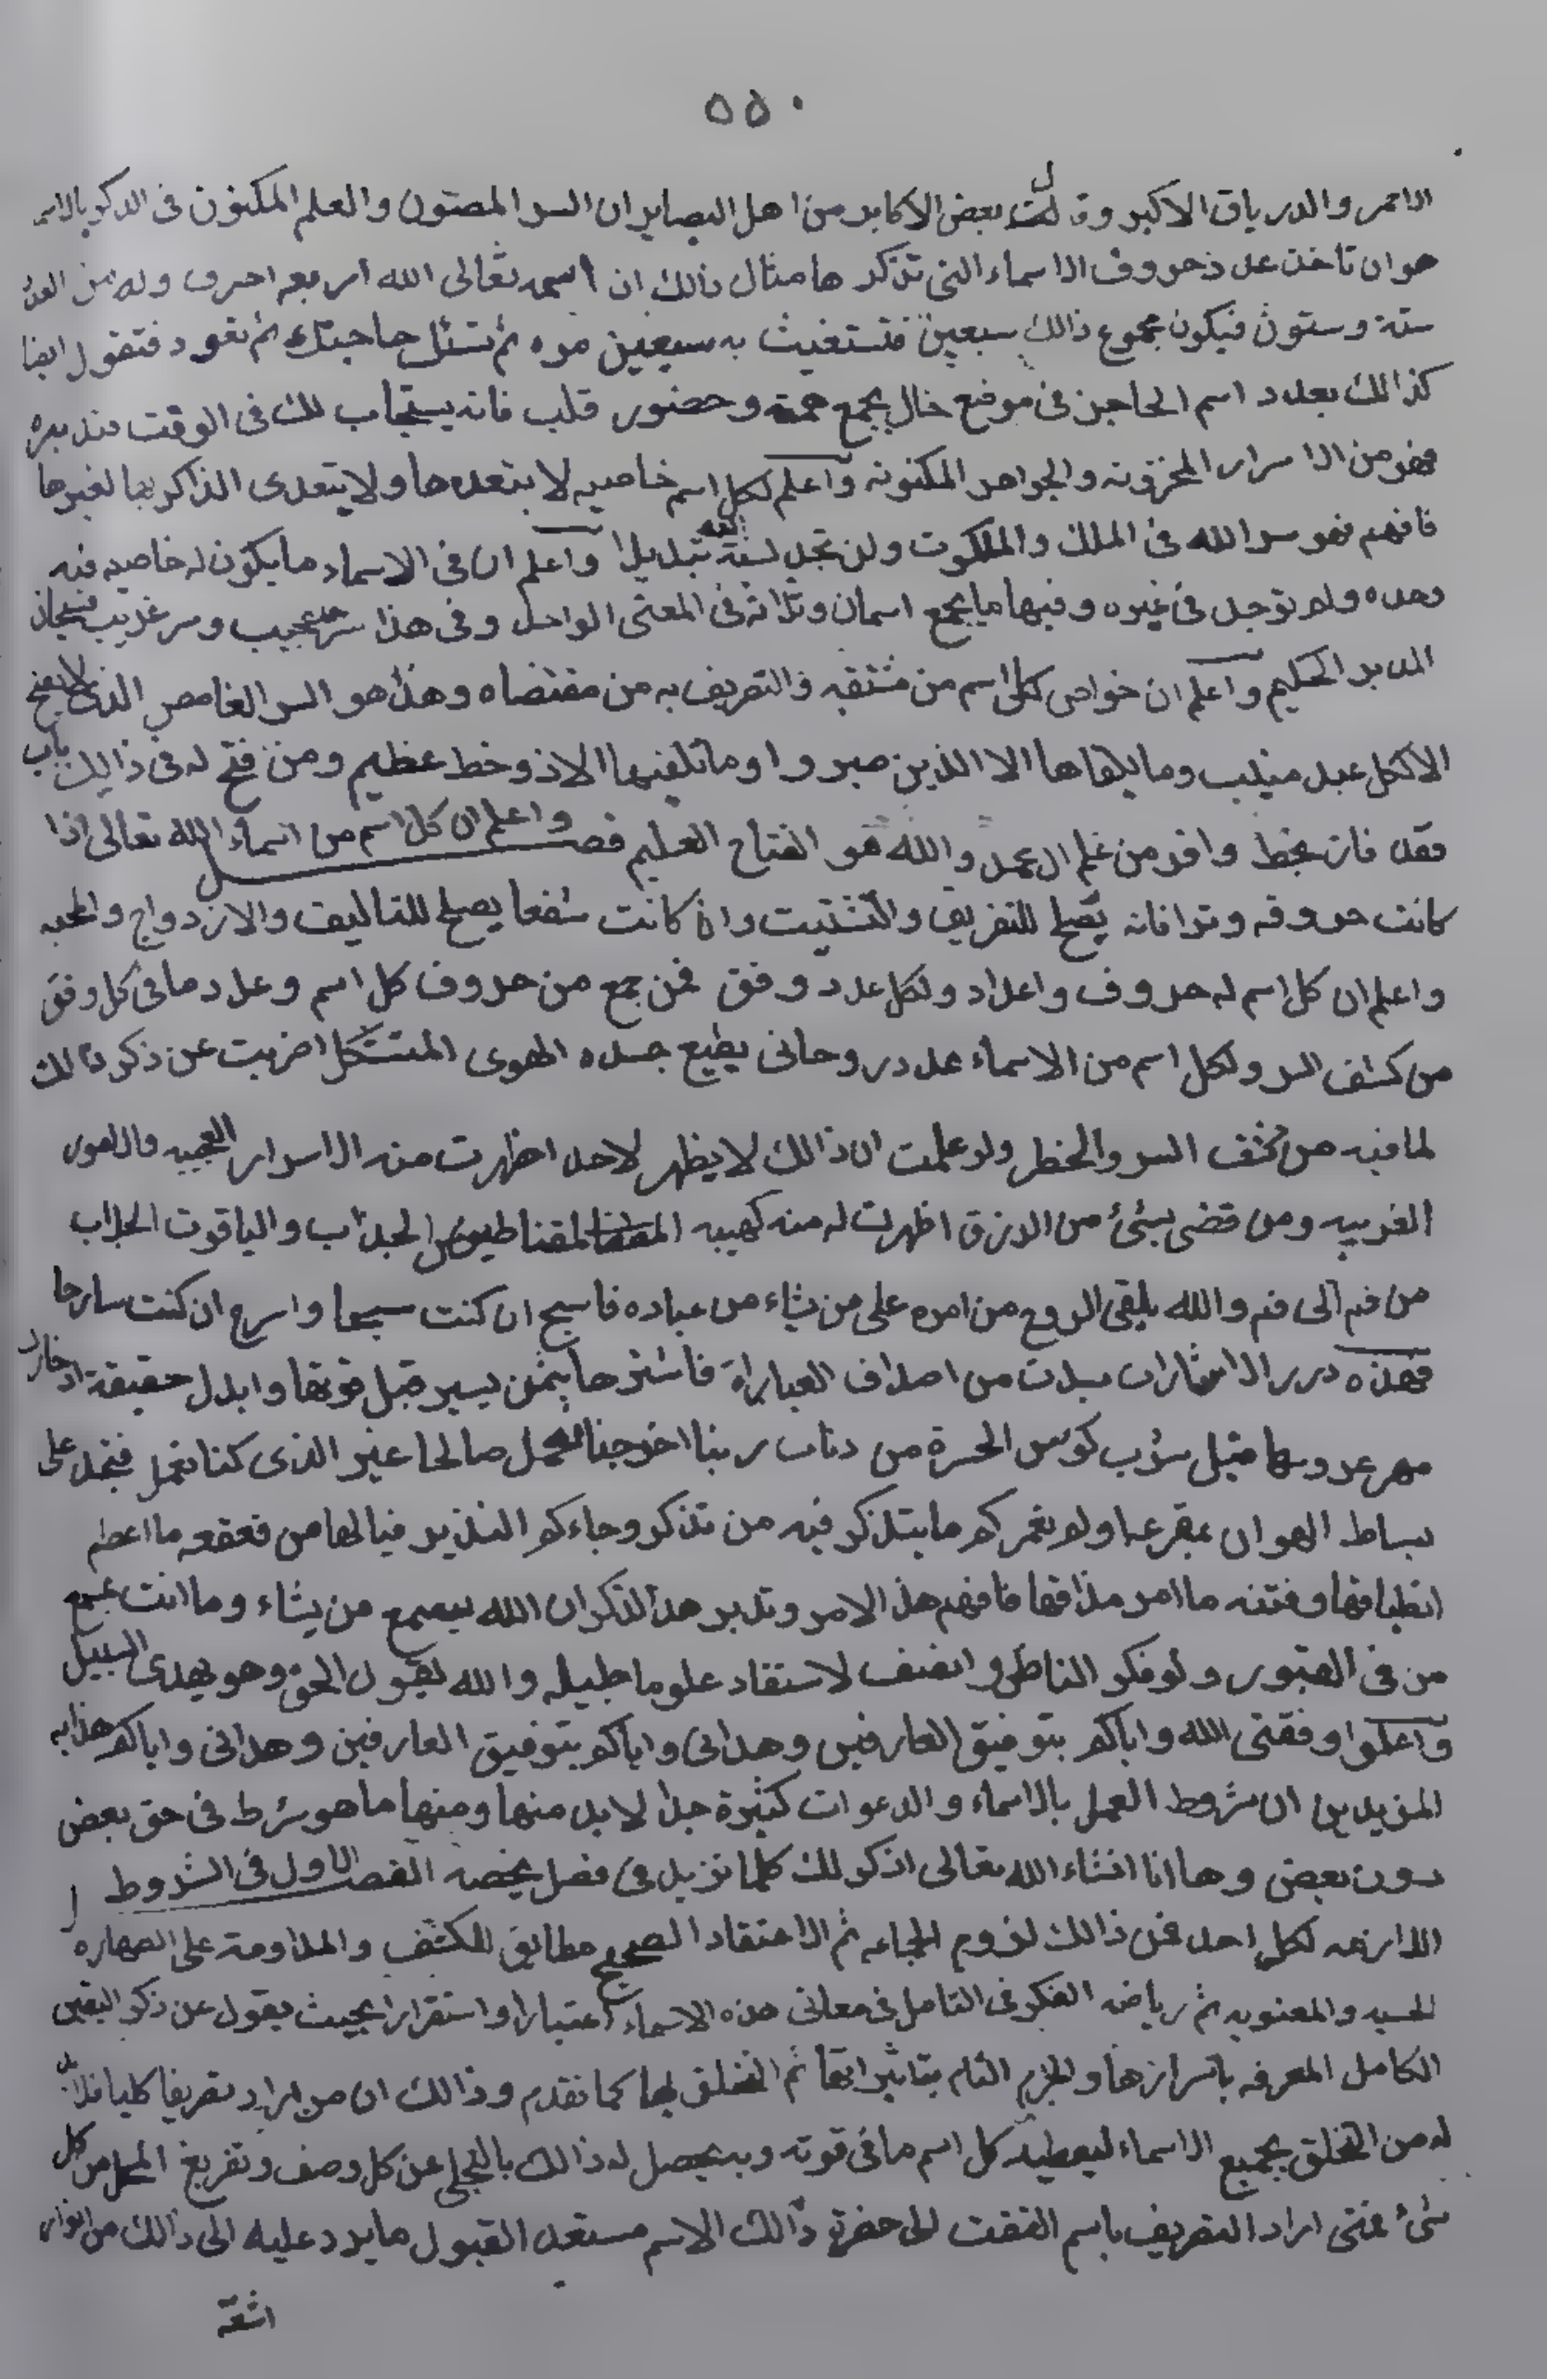 ٥٥٠
الاحمر والدرياق الاكبر وقالت بعض الاكابر من اهل البصاير ان السر المصون والعلم المكنون فى الذكر بالاسم
هو ان تاخذ عدد حروف الاسماء التى تذكرها مثال ذالك ان اسمه تعالى الله اربعه احرف وله من العدد
ستة وستون فيكون مجموع ذالك سبعين فتستغيث به سبعين مره ثم تسئل حاجتك ثم تعود فتقول ايضا
كذالك بعدد اسم الحاجن فى موضع خال بجمع همة وحضور قلب فانه يستجاب لك فى الوقت فتدبره
فهو من الاسرار المخزونه والجواهر المكنونه واعلم لكل اسم خاصيه لا يتعدها ولا يتعدى الذاكر بها لغيرها
فافهم فهو سر الله فى الملك والملكوت ولن تجد لسنة الله تبديلا واعلم ان فى الاسماء ما يكون له خاصيه فيه
وحده ولا توجد فى غيره وفيها ما يجمع اسمان وثلاثه فى المعنى الواحد وفى هذا سر عجيب وسر غريب فسبحان
المدبر الحكيم واعلم ان خواص كل اسم من مشتقه والتصريف به من مقتضاه وهذا هو السر الغامض الذى لا يفتح
الا لكل عبد منيب وما يلقاها الا الذين صبروا وما يلقيها الا ذو حظ عظيم ومن فتح له فى ذالك باب
فقد فاز بحظ وافر من علم العمل والله هو الفتاح العليم فصل واعلم ان كل اسم من اسماء الله تعالى اذا
كانت حروفه وترا فانه يصلح للتفريق والتشتيت وان كانت شفعا يصلح للتاليف والازدواج والمحبه
واعلم ان كل اسم له حروف واعداد ولكل عدد وفق فمن جمع من حروف كل اسم وعدد ما فى كل وفق
من كشف السر ولكل اسم من الاسماء عدد روحانى يطيع جسده الهوى المتشكل اضربت عن ذكر ذالك
لما فيه من كشف السر والخطر ولو علمت ان ذالك لا يظهر لاحد اظهرت منه الاسرار العجيبه والامور
الغريبه ومن قضى بشئ من الرزق اظهرت له منه كهيبه المقناطيس الجذاب والياقوت الجلاب
من فم الى فم والله يلقى الروح من امره على من يشاء من عباده فاسبح ان كنت سبحا واسرح ان كنت سارحا
فهذه درر الاشارات بدت من اصداف العبارات فاشترها بثمن يسير قبل فوتها وابدل حقيقة ادخار
مهر عروسها قبل شرب كوس الحسرة من دنات ربنا اخرجنا نعمل صالحا غير الذى كنا نعمل فتجد على
بساط الهوان بمقرعه اولم نعمركم ما يتذكر فيه من تذكر وجاءكم النذير فيا لها من قعقعه ما اعظم
انطباقها وفتنه ما امر مذاقها فافهم هذ الامر وتدبر هذ الذكر ان الله يسمع من يشاء وما انت بمسمع
من فى القبور ولو فكر الناظر وانصف لاستفاد علوما جليله والله يقول الحق وهو يهدى السبيل
واعلموا وفقنى الله واياكم بتوفيق العارفين وهدانى واياكم بتوفيق العارفين وهدانى واياكم هذابه
المزيدين ان شروط العمل بالاسماء والدعوات كثيرة جدا لابد منها ومنها ما هو شرط فى حق بعض
دون بعض وها انا انشاء الله تعالى اذكر لك كلما نزيل فى فصل يخصه الفصل الاول فى الشروط
اللازمه لكل احد فمن ذالك لزوم الجماعه ثم الاعتقاد الصحيح مطابق للكشف والمداومة على الطهاره
الحسيه والمعنويه ثم رياضه الفكر فى التامل فى معانى هذه الاسماء اعتبارا واستقرارا بحيث يقول عن ذكر اليقين
الكامل المعرفه باسرارها والجزم التام بتاثيراتها ثم التخلق بها كما تقدم وذالك ان من اراد تصريفا كليا فلا بد
له من التخلق بجميع الاسماء ليعطيه كل اسم ما فى قوته وبه يحصل له ذالك بالتجلى عن كل وصف وتفريغ المحل من كل
شئ فمتى اراد التصريف باسم التفت الى حضرة ذالك الاسم مستعد القبول ما يرد عليه الى ذالك من انوار
اشعة